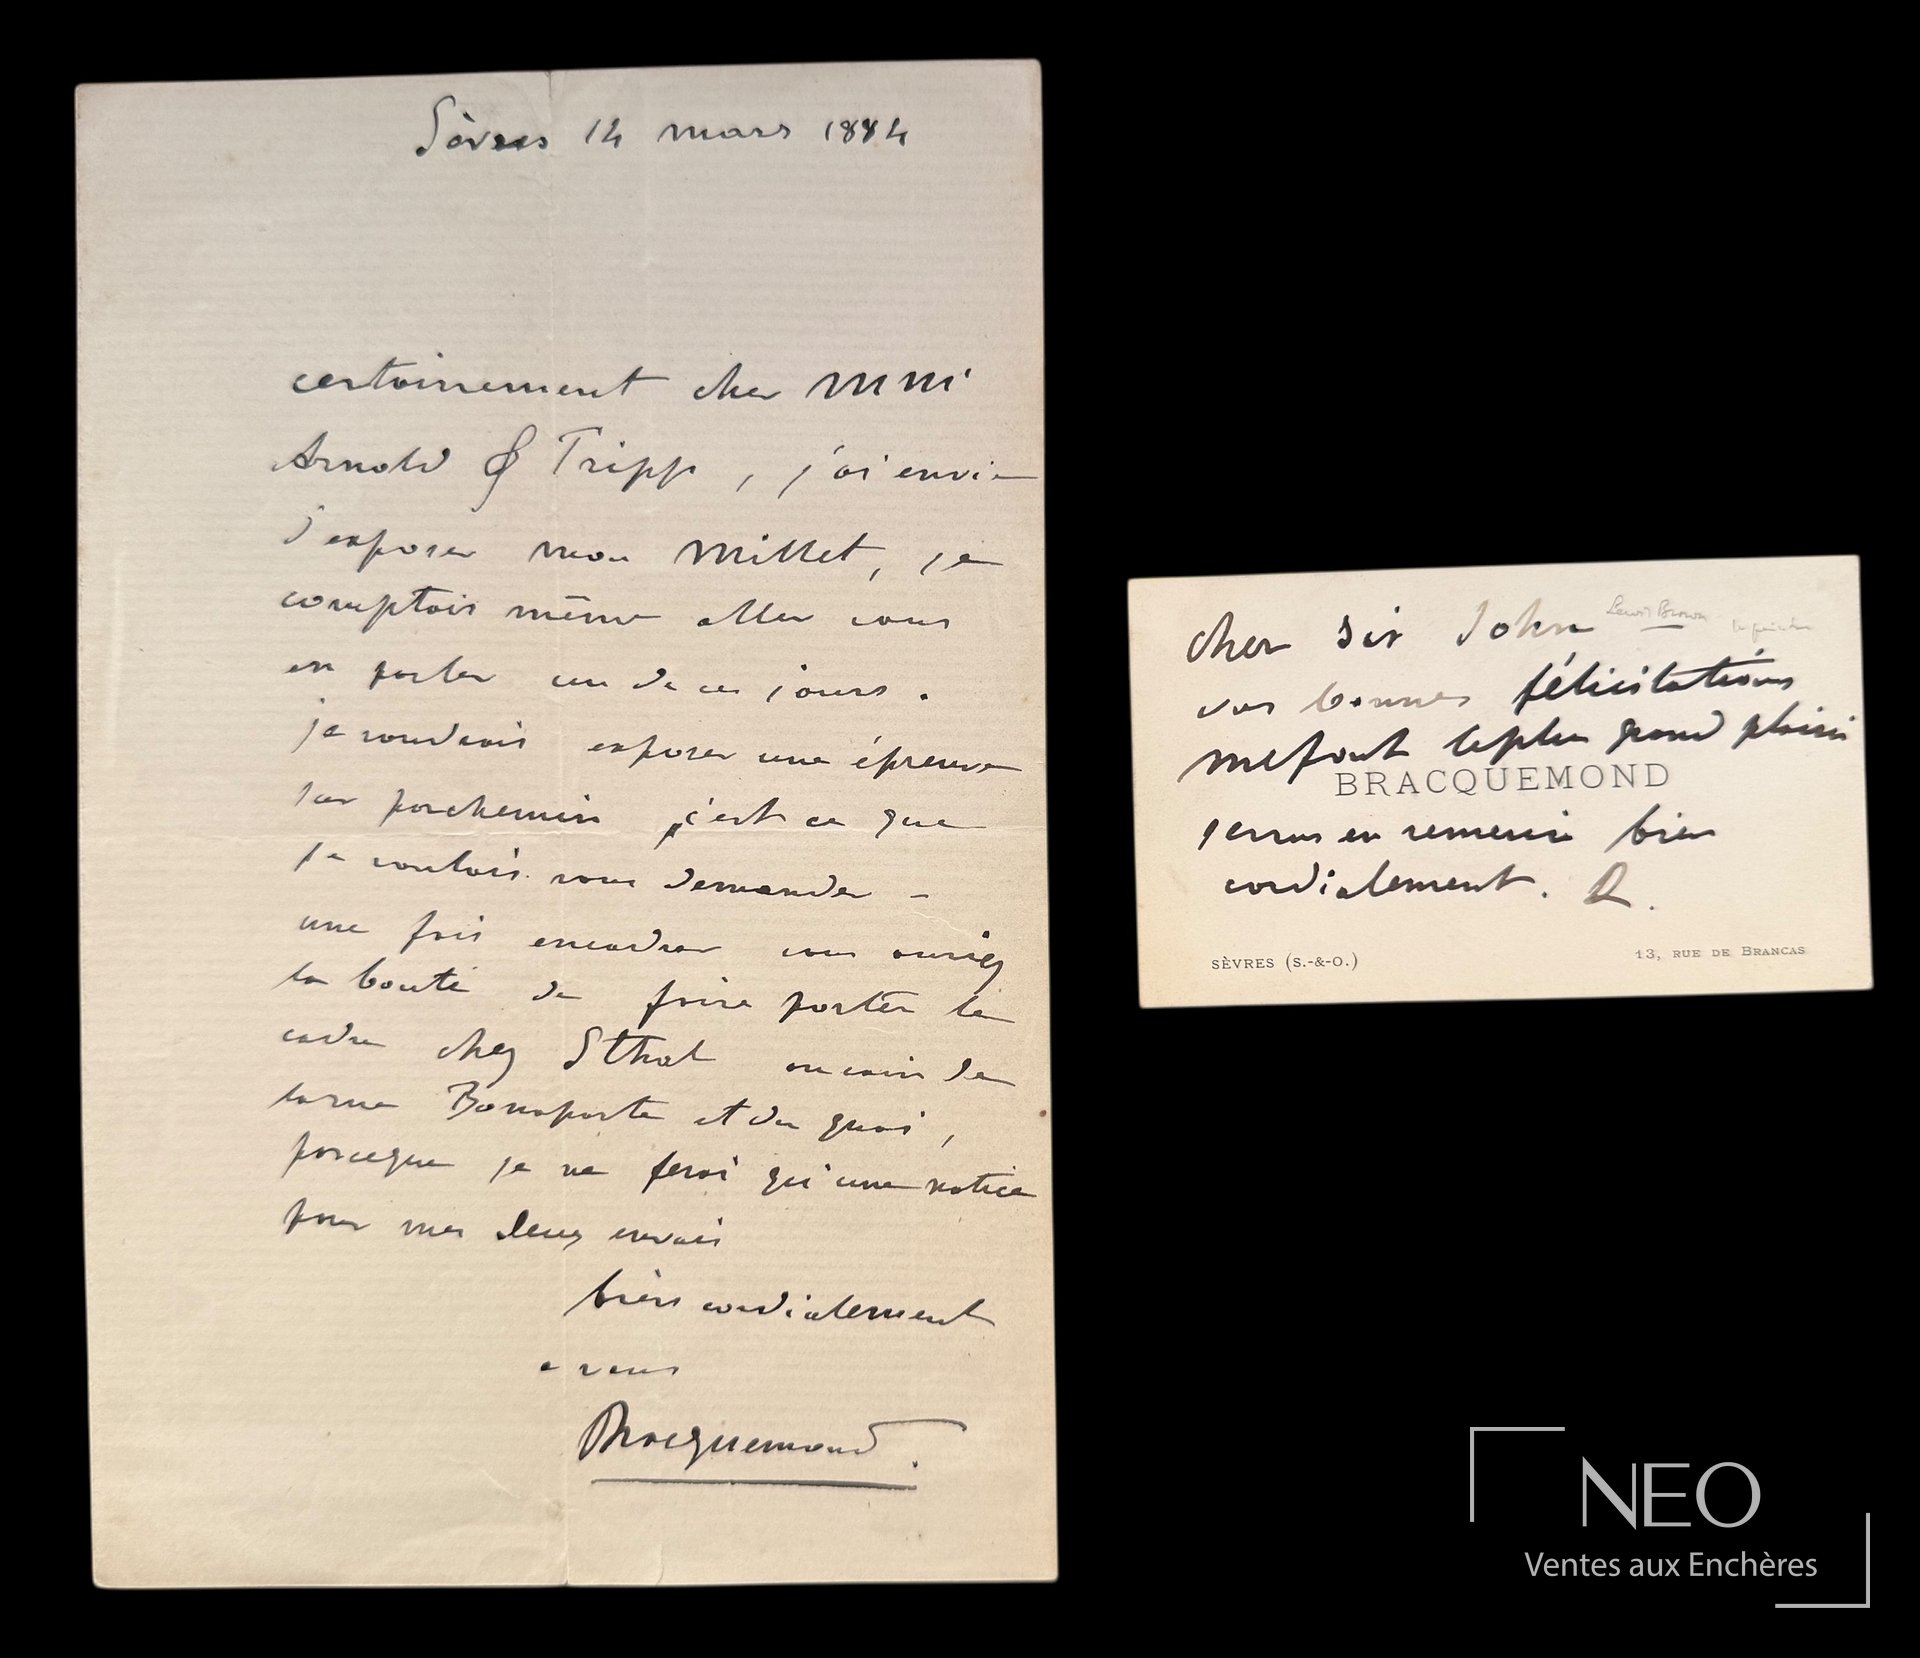 Sèvres 14 mars 1884
certainement cher MM
Arnold & Tripp, j'ai envie
d'exposer mon Millet, je
comptais même aller vous
en parler un de ces jours.
je voudrais exposer une épreuve
sur parchemin c'est ce que
je voulais vous demander -
une fois encadrer vous auriez
la bonté de faire porter le
cadre chez au coin de
la rue Bonaparte et du quai,
parceque je ne ferai qu'une notice
pour mes deux envois
bien cordialement
a vous
Bracquemond.
cher sir John Lewis Brown le peintre
vos bonnes félicitations
me font le plus grand plaisir
BRACQUEMOND
je vous en remercie bien
cordialement.
SÈVRES (S.-&-O.)
13, RUE DE BRANCAS
NEO
Ventes aux Enchères